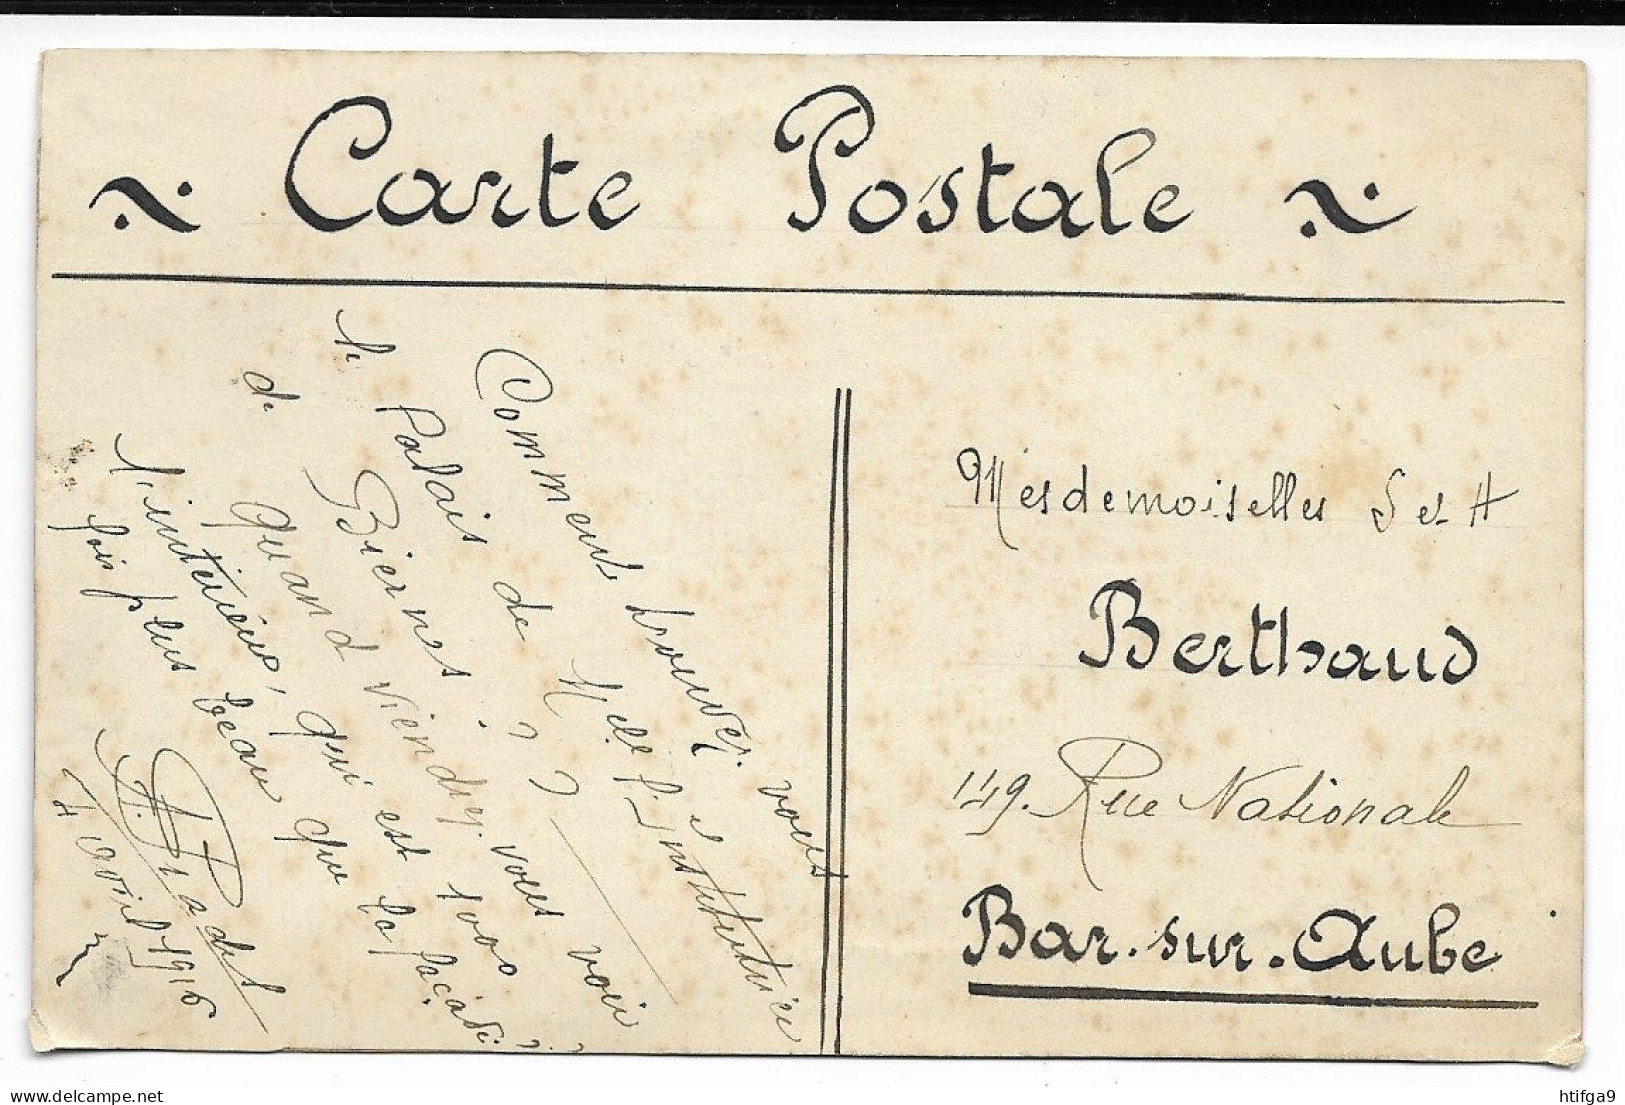 Carte Postale
Comment trouvez vous
le Palais de Melle l'institutrice
de Biernes. ? ?
quand viendrez vous voir
l'intérieur, qui est 1000
fois plus beau que la façade ?
A. Pradel
4 avril 1916
Mesdemoiselles S et H
Berthaud
149. Rue Nationale
Bar-sur-Aube
Delcampe.net
htifga9